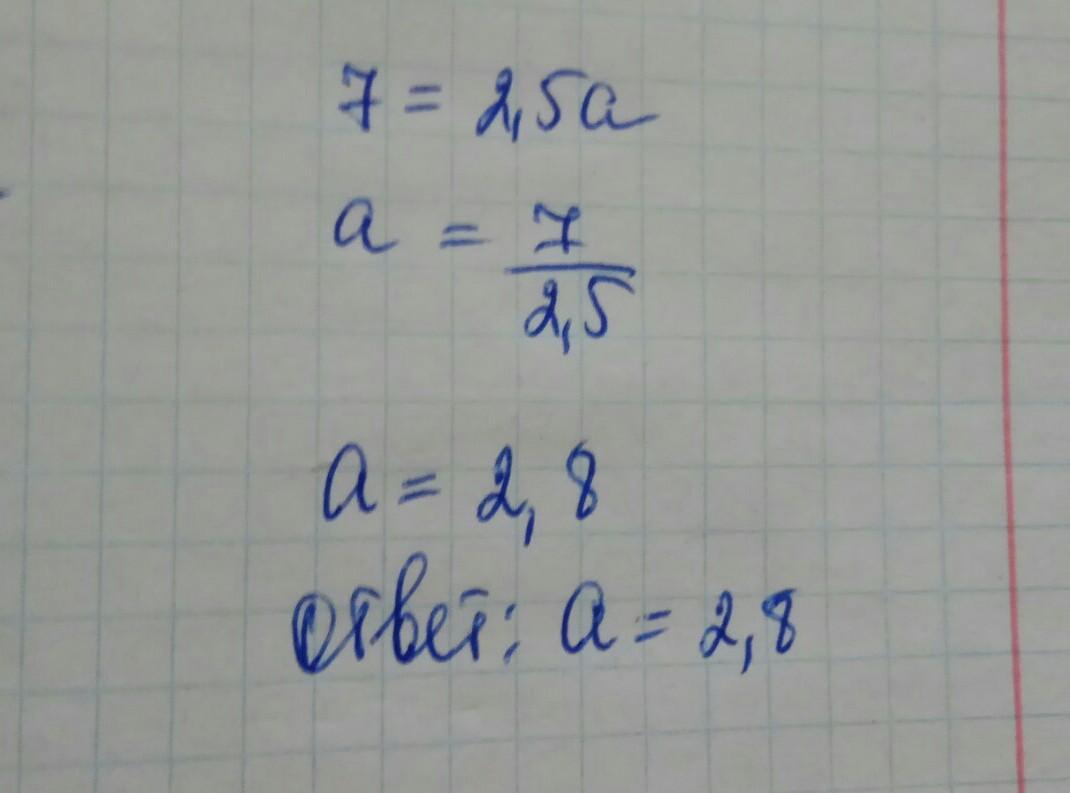 7 = 2,5a
a = 7/2,5
a = 2,8
Ответ: a = 2,8